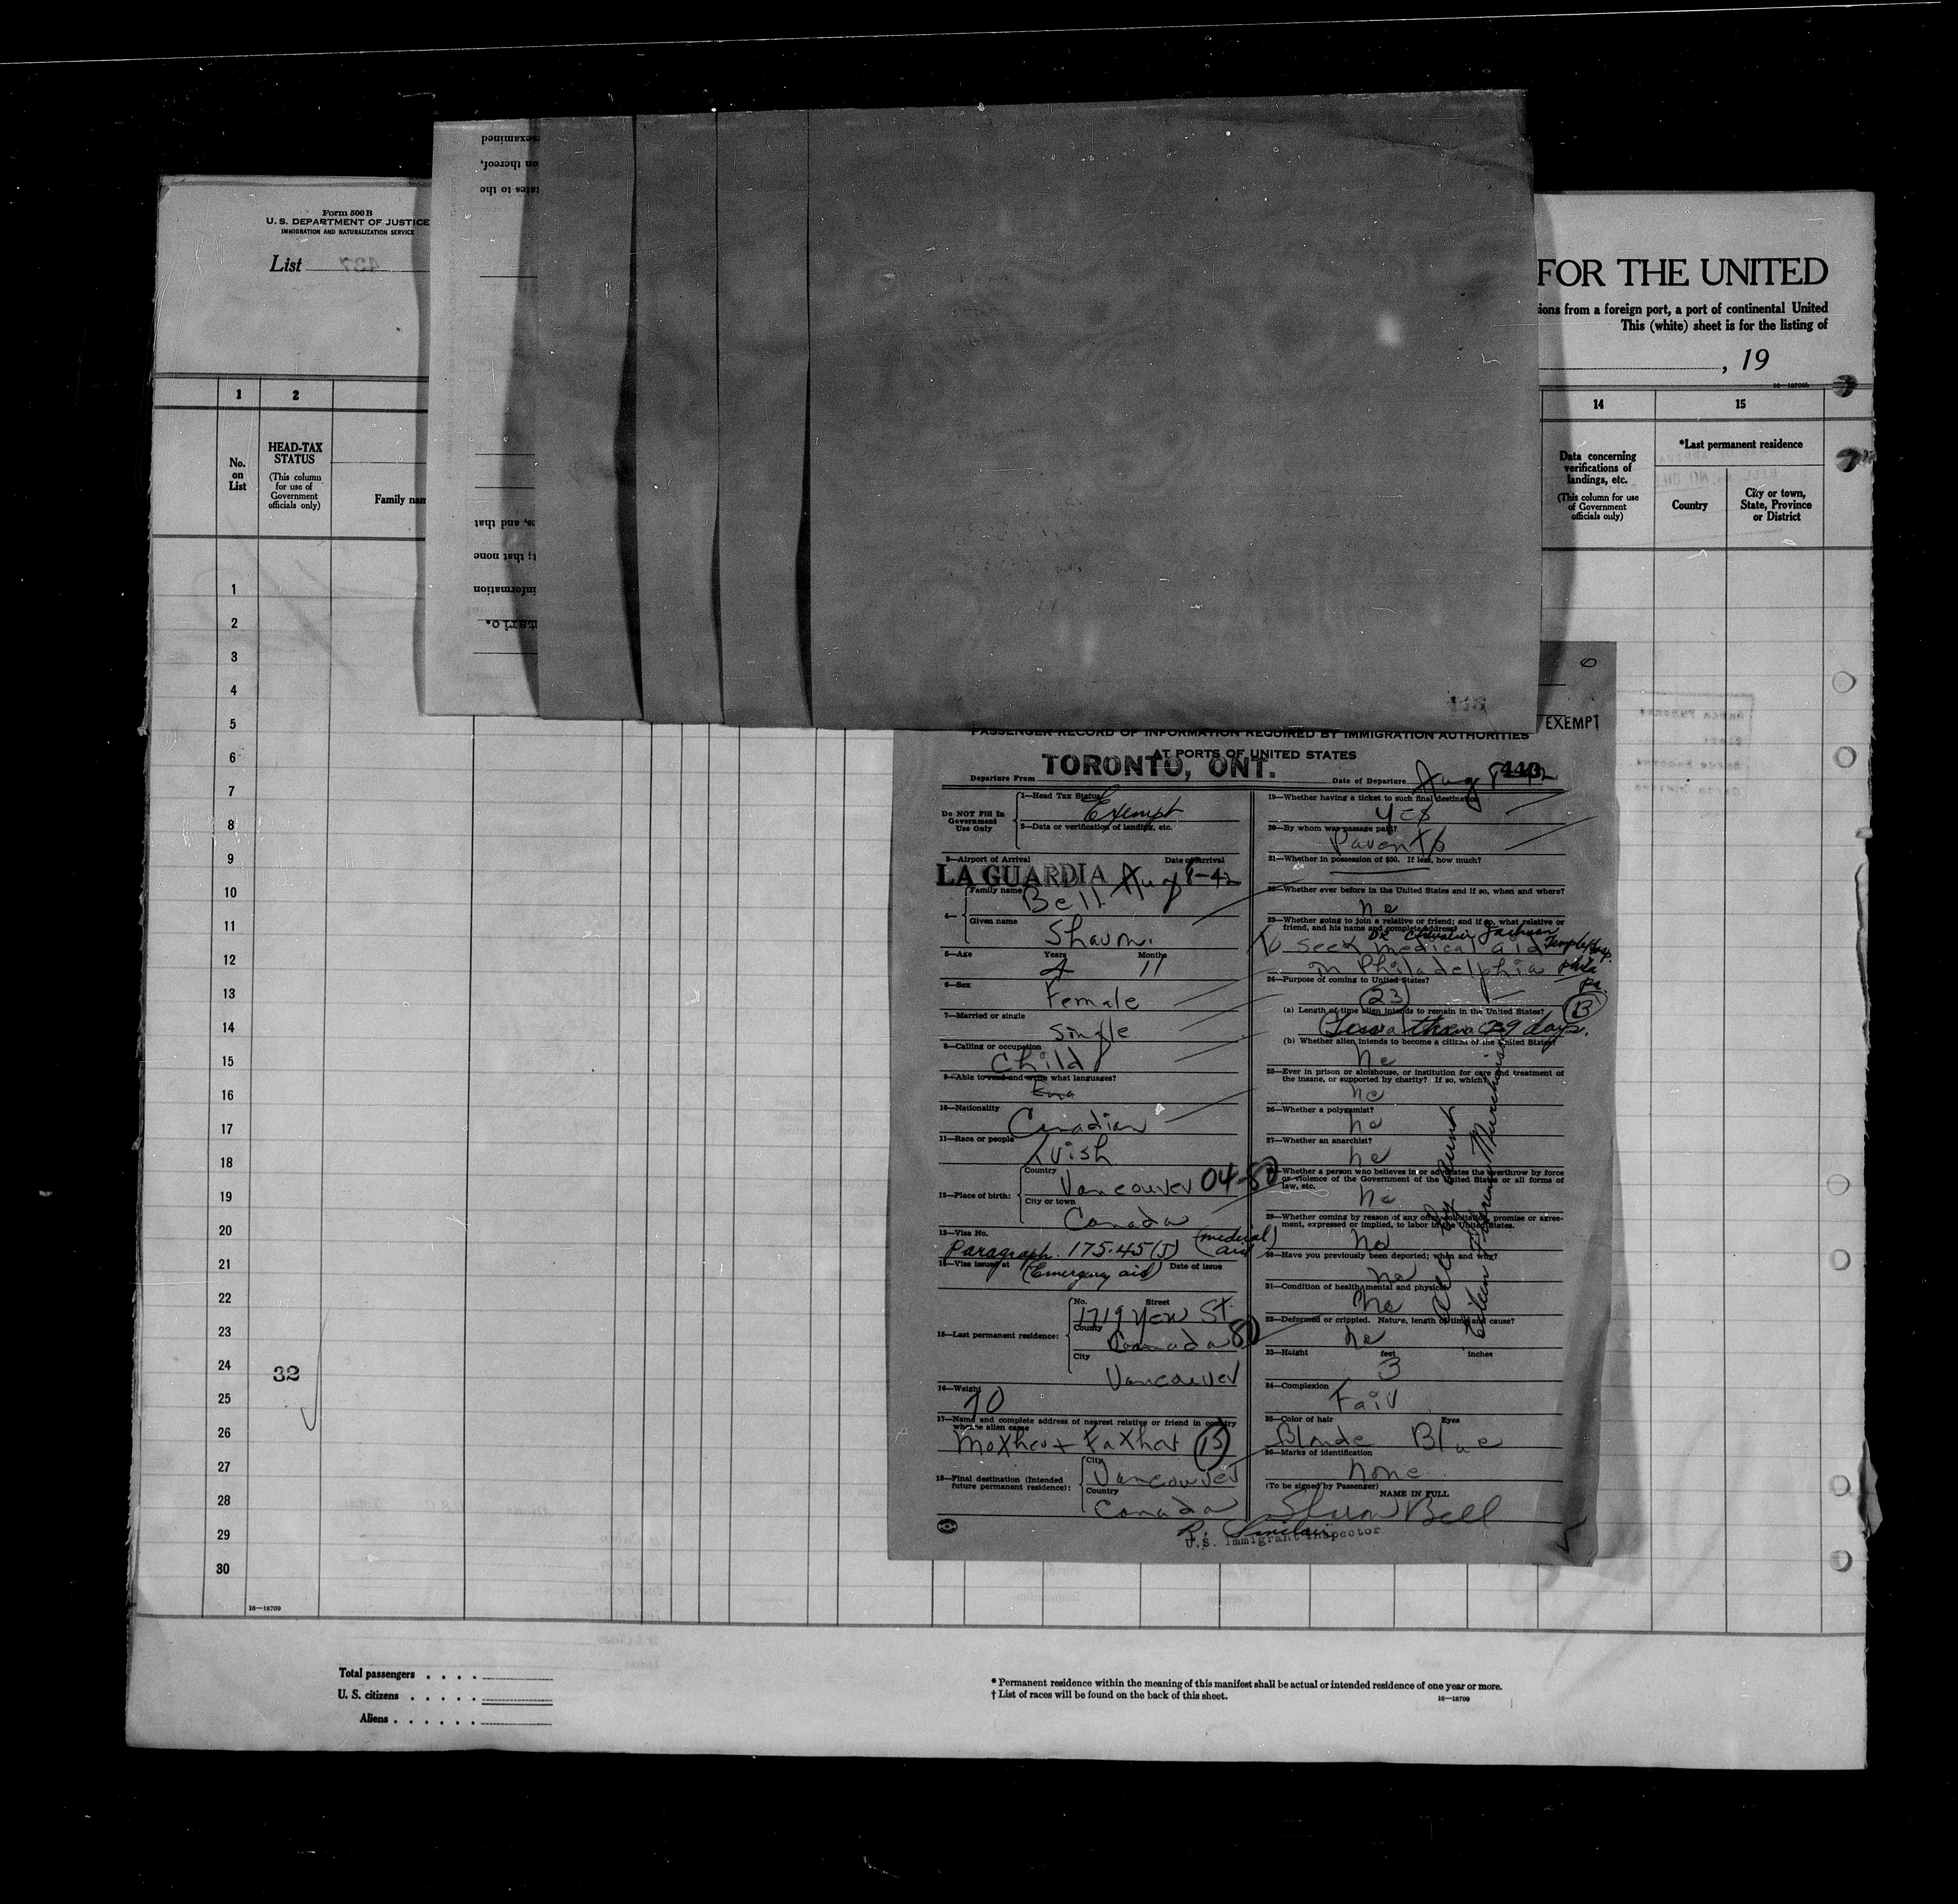 Form 500 B
U. S. DEPARTMENT OF JUSTICE
IMMIGRATION AND NATURALIZATION SERVICE
List
examined
on thereof,
ates to the
FOR THE UNITED
ions from a foreign port, a port of continental United
This (white) sheet is for the listing of
, 19
1
2
14
15
No.
on
List
HEAD-TAX
STATUS
(This column
for use of
Government
officials only)
Family nam
Data concerning
verifications of
landings, etc.
(This column for use
of Government
officials only)
*Last permanent residence
Country
City or town,
State, Province
or District
s, and that
t; that none
information
tario.
1
2
3
4
5
6
7
8
9
10
11
12
13
14
15
16
17
18
19
20
21
22
23
24
25
26
27
28
29
30
32
16—18709
EXEMPT
PASSENGER RECORD OF INFORMATION REQUIRED BY IMMIGRATION AUTHORITIES
AT PORTS OF UNITED STATES
Departure From TORONTO, ONT.
Date of Departure Aug
Do NOT Fill In
Government
Use Only
1—Head Tax Status
Exempt
2—Data or verification of landing, etc.
3—Airport of Arrival
Date of Arrival
LA GUARDIA Aug 8-42
4—
Family name
Bell
Given name
Shaun.
5—Age
Years
Months
4 11
6—Sex
Female
7—Married or single
Single
8—Calling or occupation
Child
9—Able to read and write what languages?
Eng
10—Nationality
Canadian
11—Race or people
Irish
12—Place of birth:
Country
Vancouver 04-80
City or town
Canada
13—Visa No.
Paragraph 175.45(J) (medical aid)
14—Visa issued at
Date of issue
(Emergency aid)
15—Last permanent residence:
No.
Street
1719 Yew St.
County
Canada 80
City
Vancouver
16—Weight
40
17—Name and complete address of nearest relative or friend in country
whence alien came
Mother + Father
18—Final destination (Intended
future permanent residence):
City
Vancouver
Country
Canada
19—Whether having a ticket to such final destination
Yes
20—By whom was passage paid?
Parents
21—Whether in possession of $50. If less, how much?
22—Whether ever before in the United States and if so, when and where?
no
23—Whether going to join a relative or friend; and if so, what relative or
friend, and his name and complete address?
Dr. Chevalier Jackson
To seek medical aid Temple Hosp.
in Philadelphia Phila
Pa.
24—Purpose of coming to United States?
(23)
(B)
(a) Length of time alien intends to remain in the United States?
Less than 29 days.
(b) Whether alien intends to become a citizen of the United States?
no
25—Ever in prison or almshouse, or institution for care and treatment of
the insane, or supported by charity? If so, which?
no
26—Whether a polygamist?
no
27—Whether an anarchist?
no
28—Whether a person who believes in or advocates the overthrow by force
or violence of the Government of the United States or all forms of
law, etc.
no
29—Whether coming by reason of any offer, solicitation, promise or agree-
ment, expressed or implied, to labor in the United States.
no
30—Have you previously been deported; when and why?
no
31—Condition of health, mental and physical
no
32—Deformed or crippled. Nature, length of time and cause?
no
33—Height
feet
inches
3
34—Complexion
Fair
35—Color of hair
Eyes
Blonde Blue
36—Marks of identification
none
(To be signed by Passenger)
NAME IN FULL
Shaun Bell
by aunt
Eileen
R. Sinclair
U.S. Immigrant Inspector
Total passengers
U. S. citizens
Aliens
* Permanent residence within the meaning of this manifest shall be actual or intended residence of one year or more.
† List of races will be found on the back of this sheet.
16—18709